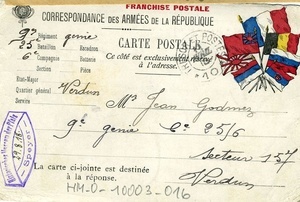 FRANCHISE POSTALE
CORRESPONDANCE DES ARMÉES DE LA RÉPUBLIQUE
9e Régiment genie
25 Bataillon Escadron
6e Compagnie Batterie
Section Pièce
État-Major
Quartier général Verdun
Service
CARTE POSTALE
Ce côté est exclusivement réservé
à l'adresse.
Mr Jean Godmez
9e genie Cie 25/6
Secteur 157
Verdun
Speyer
29.8.16
La carte ci-jointe est destinée
à la réponse.
HM-D-10003-016